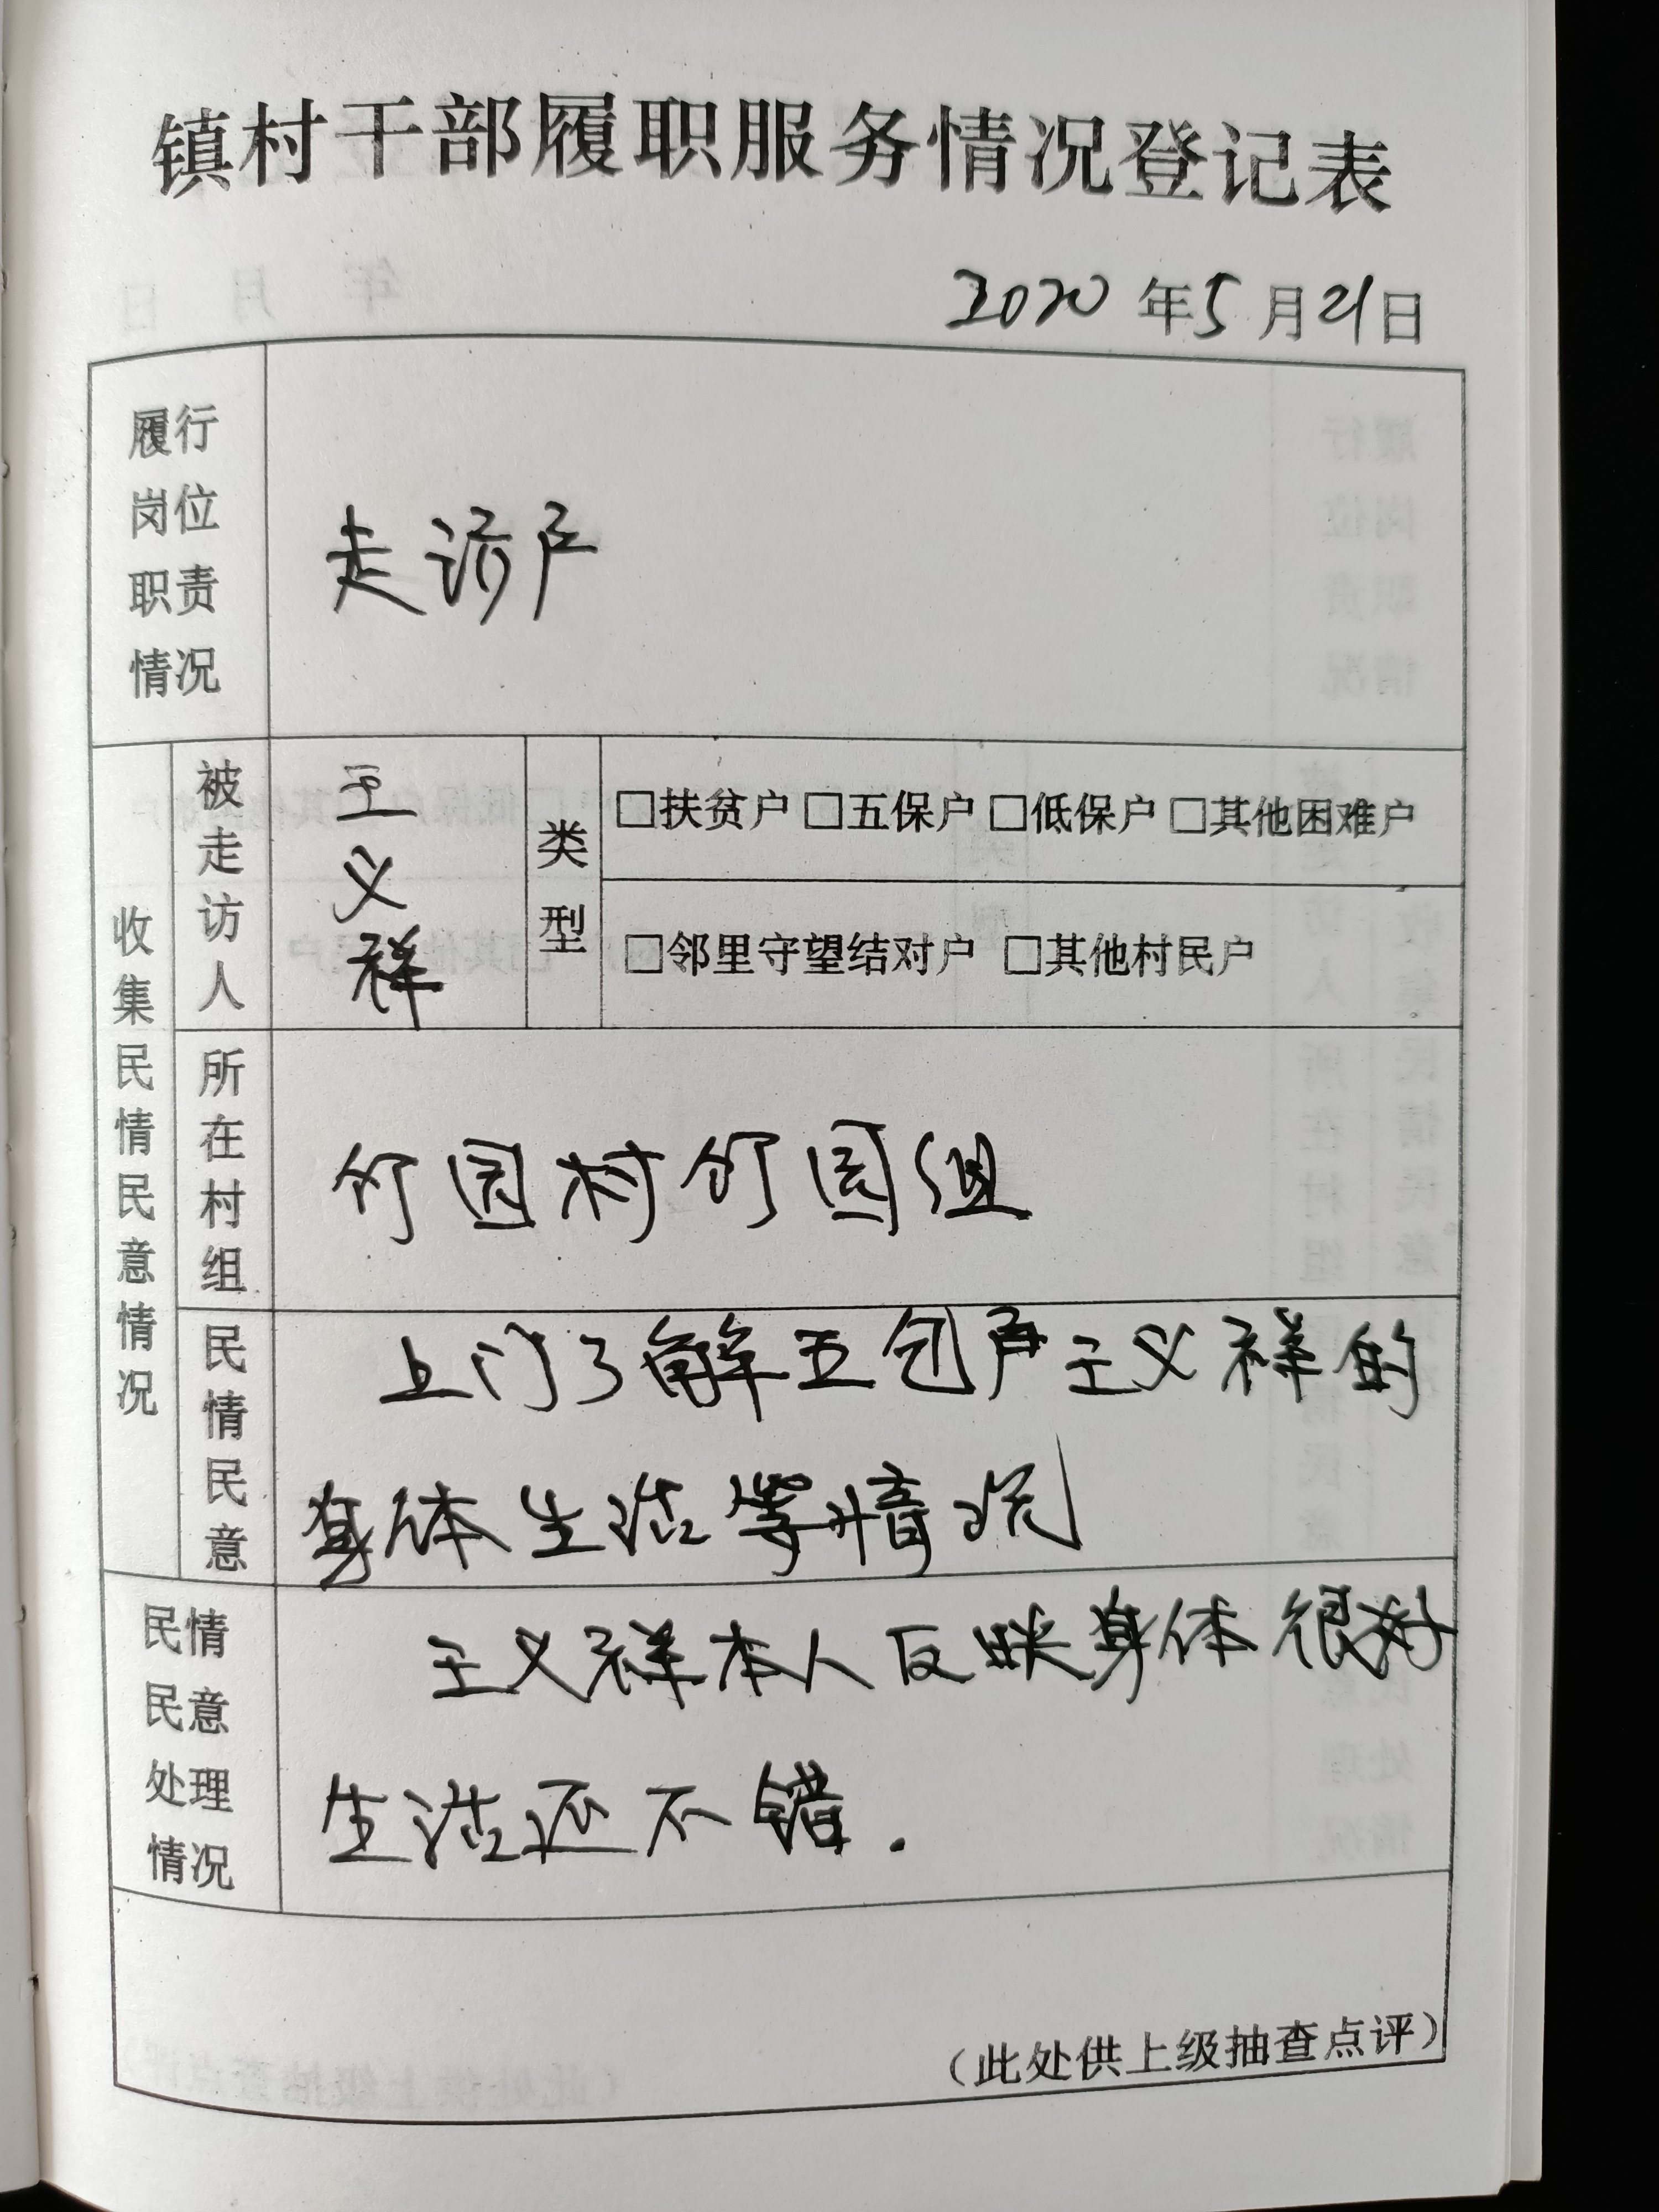 镇村干部履职服务情况登记表
2020年5月21日
履行岗位职责情况
走访户
收集民情民意情况
被走访人
王义祥
类型
□扶贫户 □五保户 □低保户 □其他困难户
□邻里守望结对户 □其他村民户
所在村组
竹园村竹园组
民情民意
上门了解五包户王义祥的
身体生活等情况
民情民意处理情况
王义祥本人反映身体很好
生活还不错.
（此处供上级抽查点评）